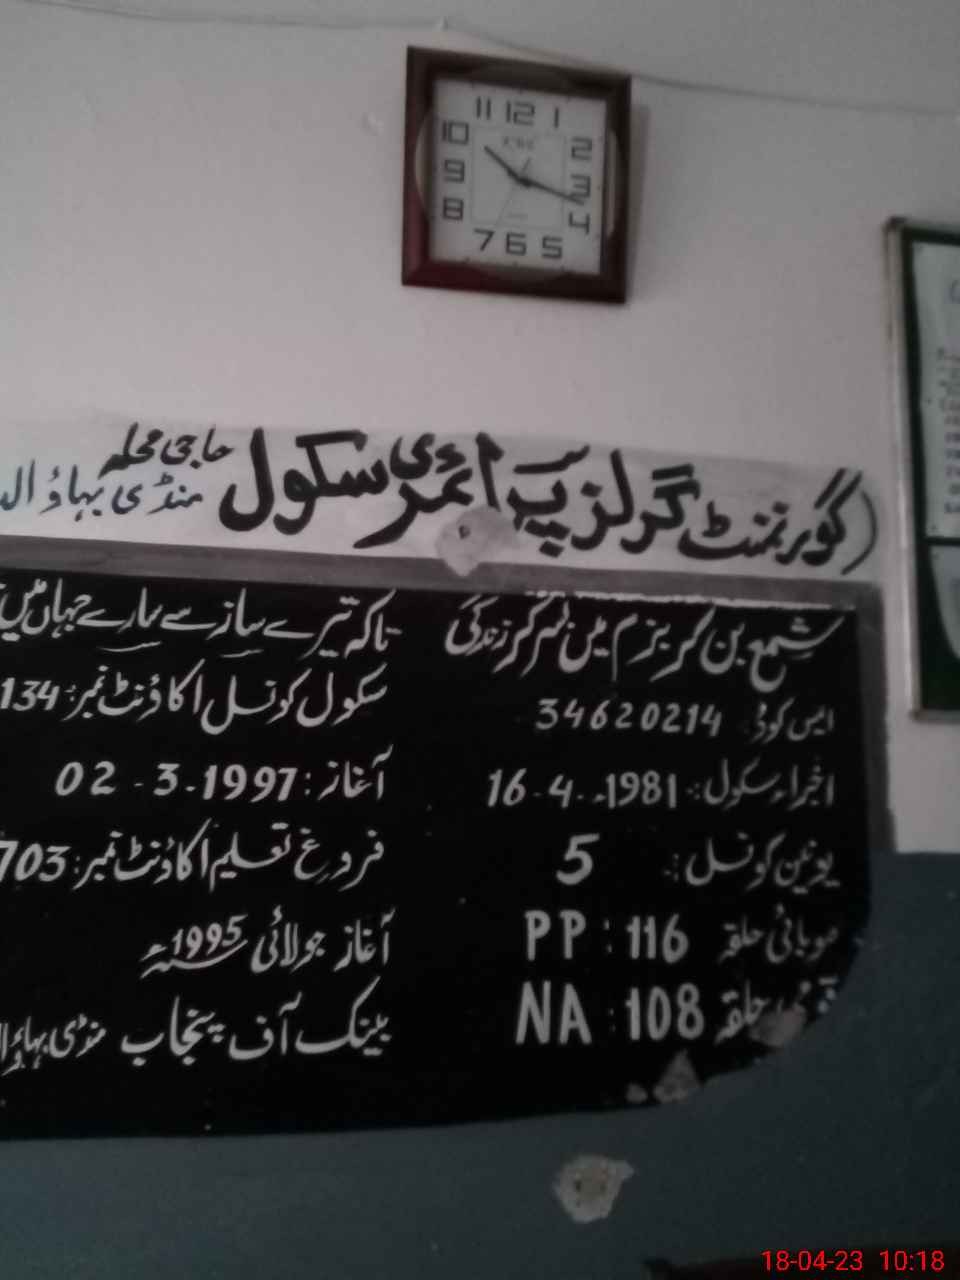 11 12 1
10 2
9 3
8 4
7 6 5
(گورنمنٹ گرلز پرائمری سکول حاجی محلہ
منڈی بہاؤ الد
شمع بن کر بزم میں سرگرم زندگی
ایس کوڈ: 34620214
اجراء سکول: 16-4-1981ء
یونین کونسل: 5
صوبائی حلقہ PP : 116
قومی حلقہ NA : 108
تاکہ تیرے ساز سے سارے جہاں میں
سکول کونسل اکاؤنٹ نمبر: 134
آغاز: 02-3-1997
فروغ تعلیم اکاؤنٹ نمبر: 703
آغاز جولائی 1995ء
بینک آف پنجاب منڈی بہاؤ ال
18-04-23 10:18